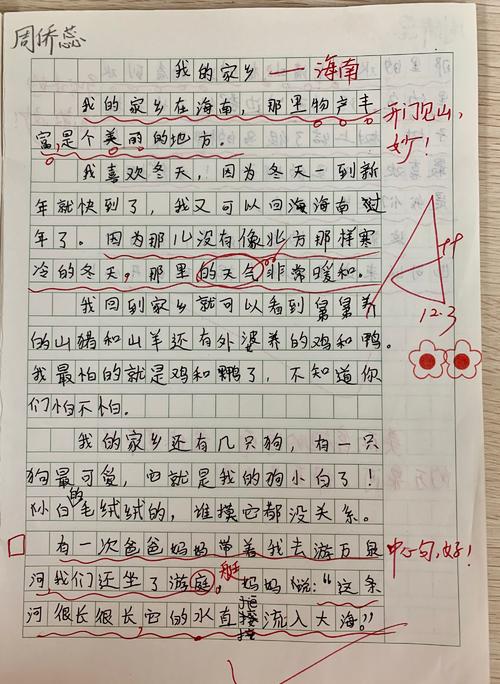 周侨蕊
我的家乡——海南
我的家乡在海南，那里物产丰
富，是个美丽的地方。
开门见山，
妙！
我喜欢冬天，因为冬天一到新
年就快到了，我又可以回海海南过
年了。因为那儿没有像北方那样寒
冷的冬天，那里的天气非常暖和。
12.3
我回到家乡就可以看到舅舅养
的山猪和山羊还有外婆养的鸡和鸭。
我最怕的就是鸡和鸭了，不知道你
们怕不怕。
我的家乡还有几只狗，有一只
狗最可爱，它就是我的狗小白了！
小白的毛绒绒的，谁摸它都没关系。
有一次爸爸妈妈带着我去游万泉
中心句，好！
河，我们还坐了游庭。艇妈妈说：“这条
河很长很长，它的水直接流入大海。”